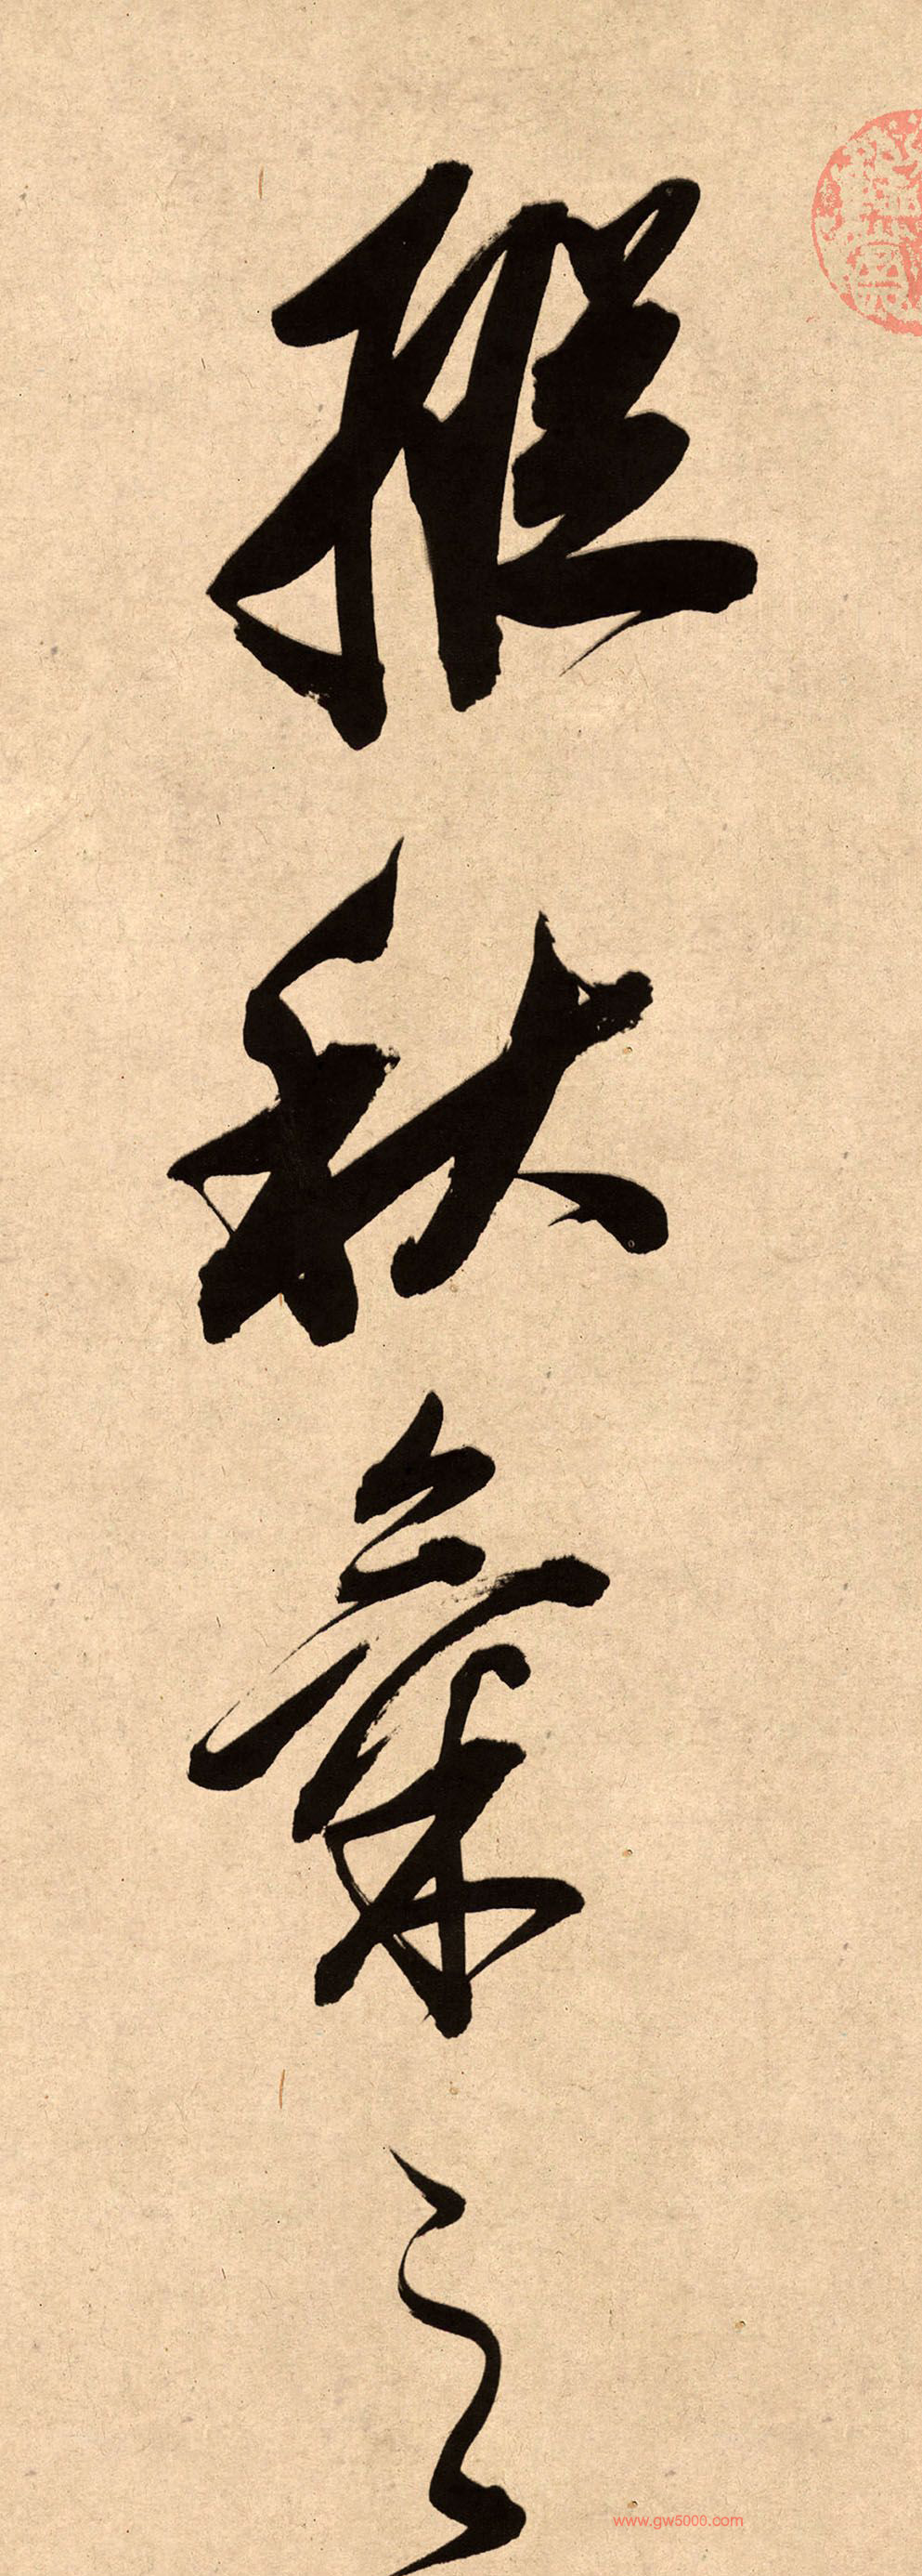 縱秋氣之
www.gw5000.com